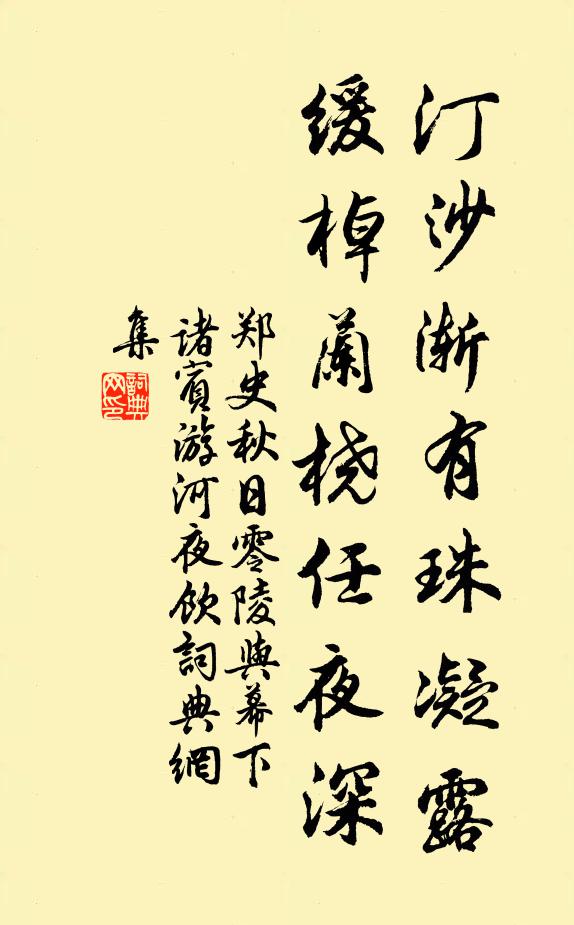 汀沙渐有珠凝露
缓棹兰桡任夜深
郑史秋日零陵與幕下
诸賓游河夜飲詞典網
集
詞典
网印